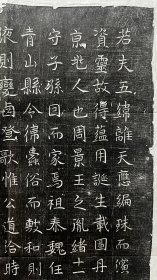 若夫五緯離天應編珠而
資靈故得蘊用誕生載圖丹
京兆人也周景王之胤緒十二
守子孫因而家焉祖泰魏任
青山縣令俗而歌和則
夜則變登歌惟公道洽時